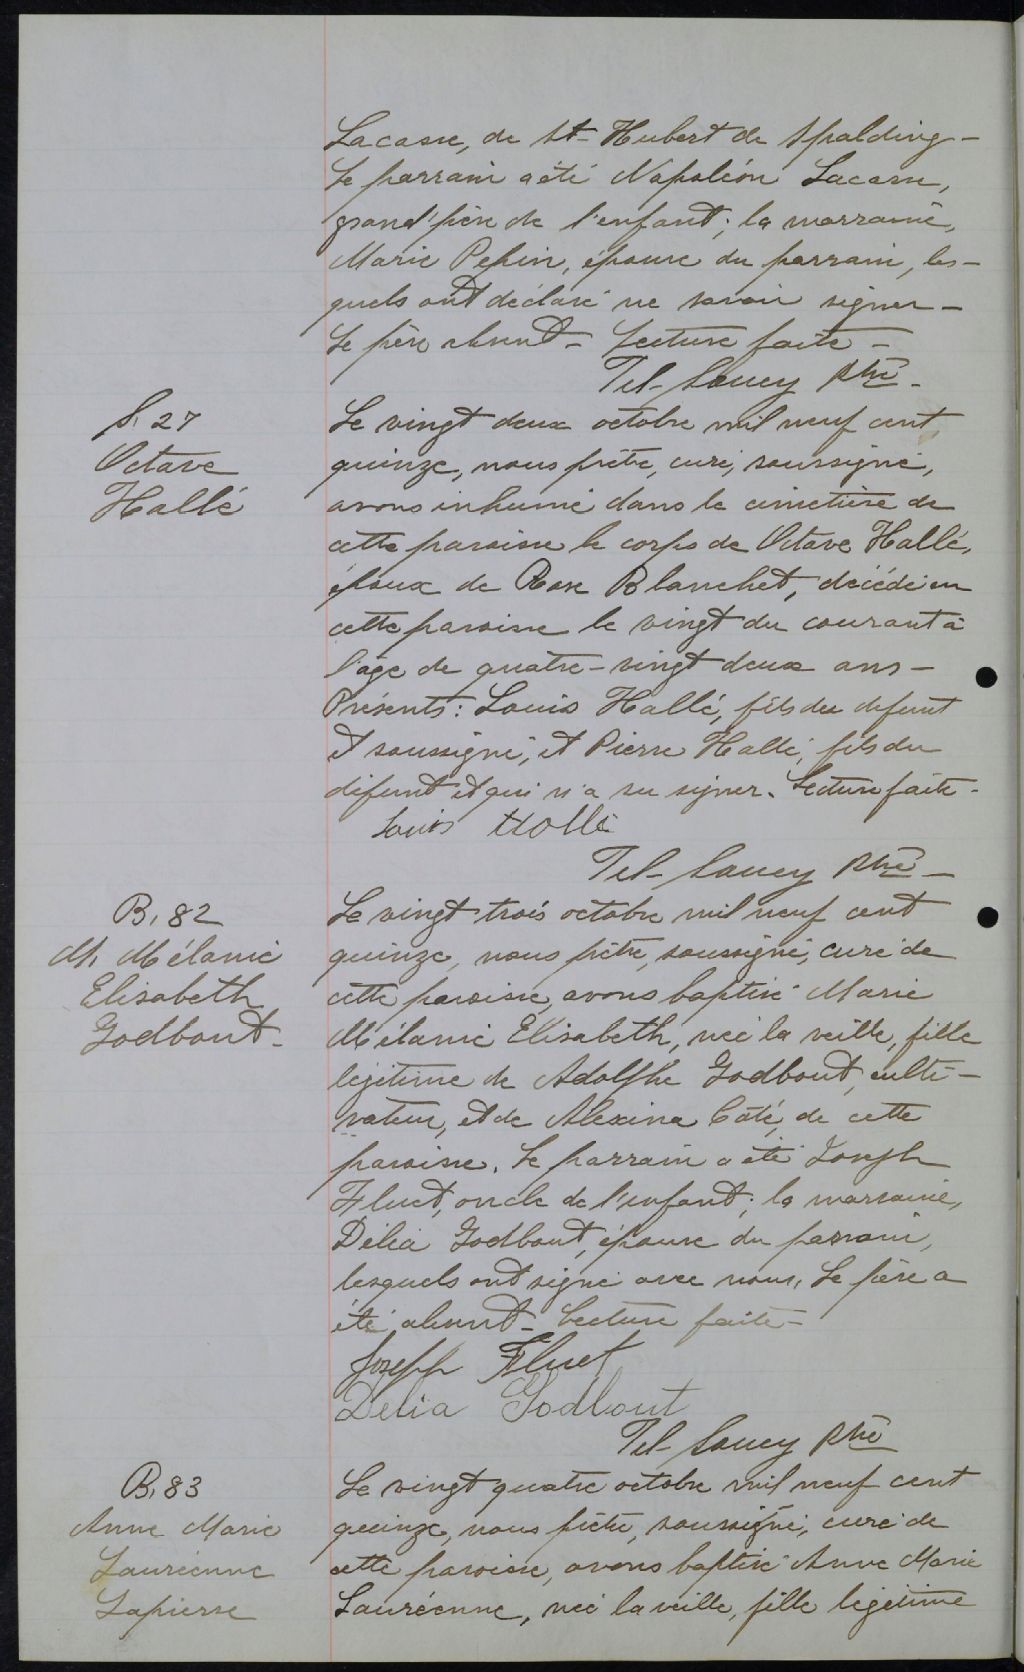 Lacasse, de St-Hubert de Spalding-
Le parrain a été Napoléon Lacasse,
grand'père de l'enfant; la marraine,
Marie Pepin, épouse du parrain, les-
quels ont déclaré ne savoir signer-
Le père absent- Lecture faite-
Tel- Soucy Ptre-
S. 27
Octave
Hallé
Le vingt deux octobre mil neuf cent
quinze, nous prêtre, curé, soussigné,
avons inhumé dans le cimetière de
cette paroisse le corps de Octave Hallé,
époux de Rose Blanchet, décédé en
cette paroisse le vingt du courant à
l'âge de quatre-vingt deux ans-
Présents: Louis Hallé, fils du defunt
et soussigné, et Pierre Hallé, fils du
défunt et qui n'a su signer. Lecture faite-
Louis Hallé
Tel- Soucy Ptre-
B. 82
M. Mélanie
Elisabeth
Godbout-
Le vingt trois octobre mil neuf cent
quinze, nous prêtre, soussigné, curé de
cette paroisse, avons baptisé Marie
Mélanie Elisabeth, née la veille, fille
légitime de Adolphe Godbout, culti-
vateur, et de Alexina Côté, de cette
paroisse. Le parrain a été Joseph
Fluet, oncle de l'enfant; la marraine,
Délia Godbout, épouse du parrain,
lesquels ont signé avec nous. Le père a
été absent- Lecture faite-
Joseph Fluet
Délia Godbout
Tel- Soucy Ptre
B. 83
Anne Marie
Lauréenne
Lapierre
Le vingt quatre octobre mil neuf cent
quinze, nous prêtre, soussigné, curé de
cette paroisse, avons baptisé Anne Marie
Lauréenne, née la veille, fille légitime